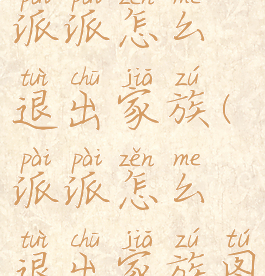 pài pài zěn me
派派怎么
tuì chū jiā zú
退出家族(
pài pài zěn me
派派怎么
tuì chū jiā zú tú
退出家族图